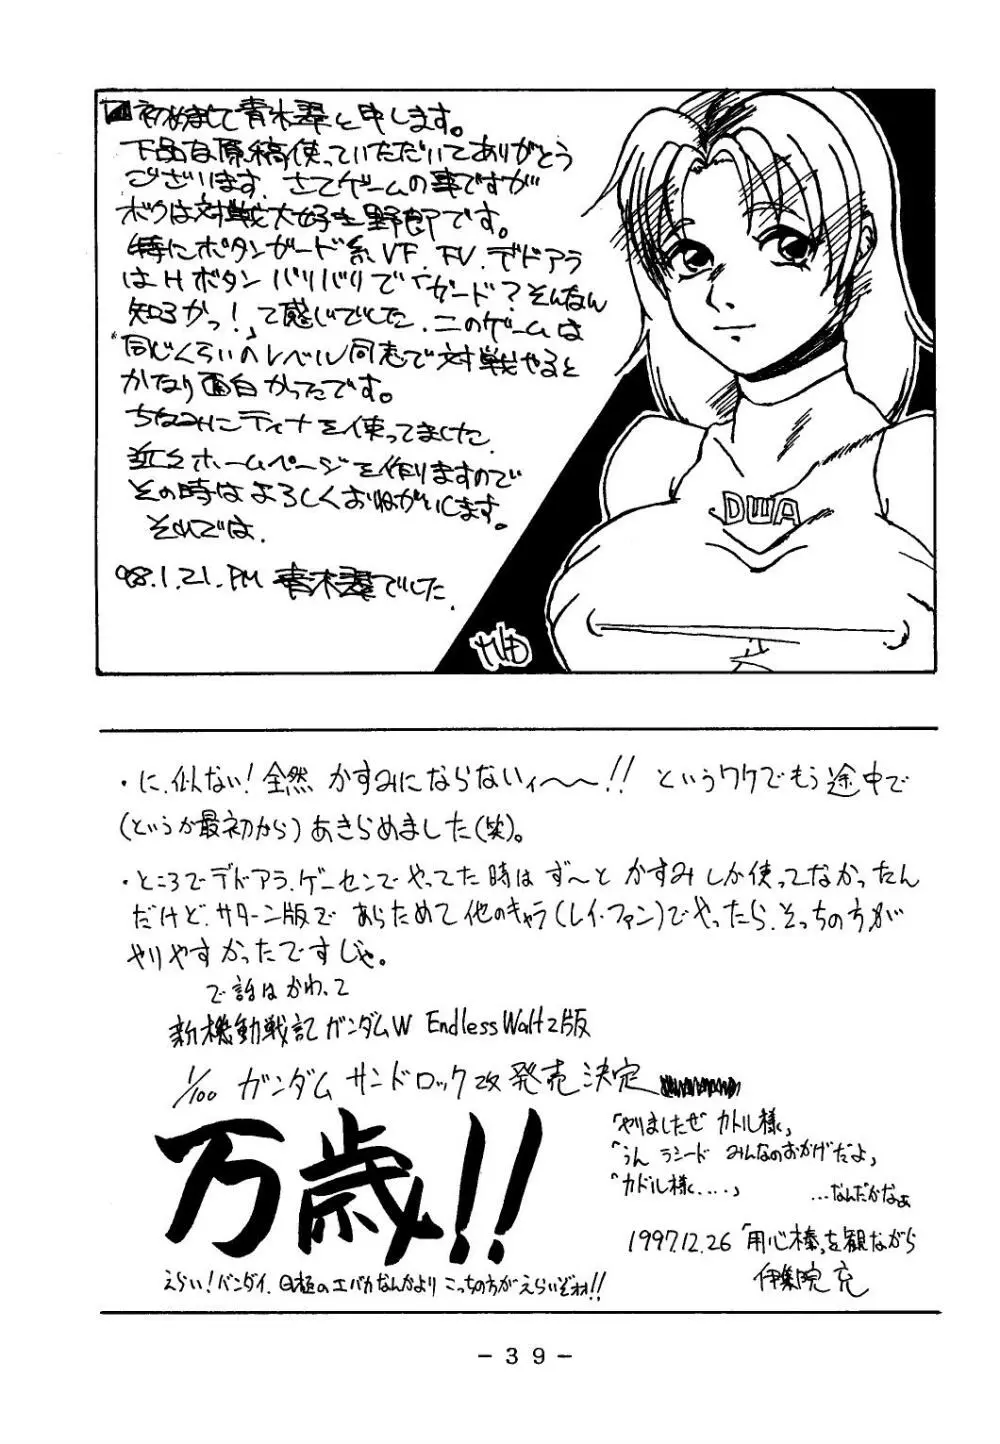 初めまして青木翠と申します。
下品な原稿使っていただいてありがとう
ございます。さてゲームの事ですが
ボクは対戦大好き野郎です。
特にボタンガード系VF.FV.デドアラ
はHボタンバリバリで「ガード?そんなん
知るかっ!」って感じでした.このゲームは
同じくらいのレベル同志で対戦やると
かなり面白かったです。
ちなみにティナを使ってました.
近々ホームページを作りますので
その時はよろしくおねがいします。
それでは.
'98.1.21.PM 青木翠でした.
DWA
・に.似ない!全然 かすみにならないィ〜〜!! というワケでもう途中で
(というか最初から)あきらめました(笑)。
・ところでデドアラ.ゲーセンでやってた時はず〜と かすみしか使ってなかったん
だけど.サターン版で あらためて他のキャラ(レイ・ファン)でやったら.そっちの方が
やりやすかったですじゃ。
で話はかわって
新機動戦記ガンダムW Endless Waltz版
1/100 ガンダム サンドロック改 発売決定
万歳!!
「やりましたぜ カトル様」
「うん ラシード みんなのおかげだよ」
「カトル様....」 …なんだかなぁ
1997.12.26 「用心棒」を観ながら
伊集院 充
えらい!バンダイ.のエバカなんかより こっちの方がえらいぞォ!!
- 39 -